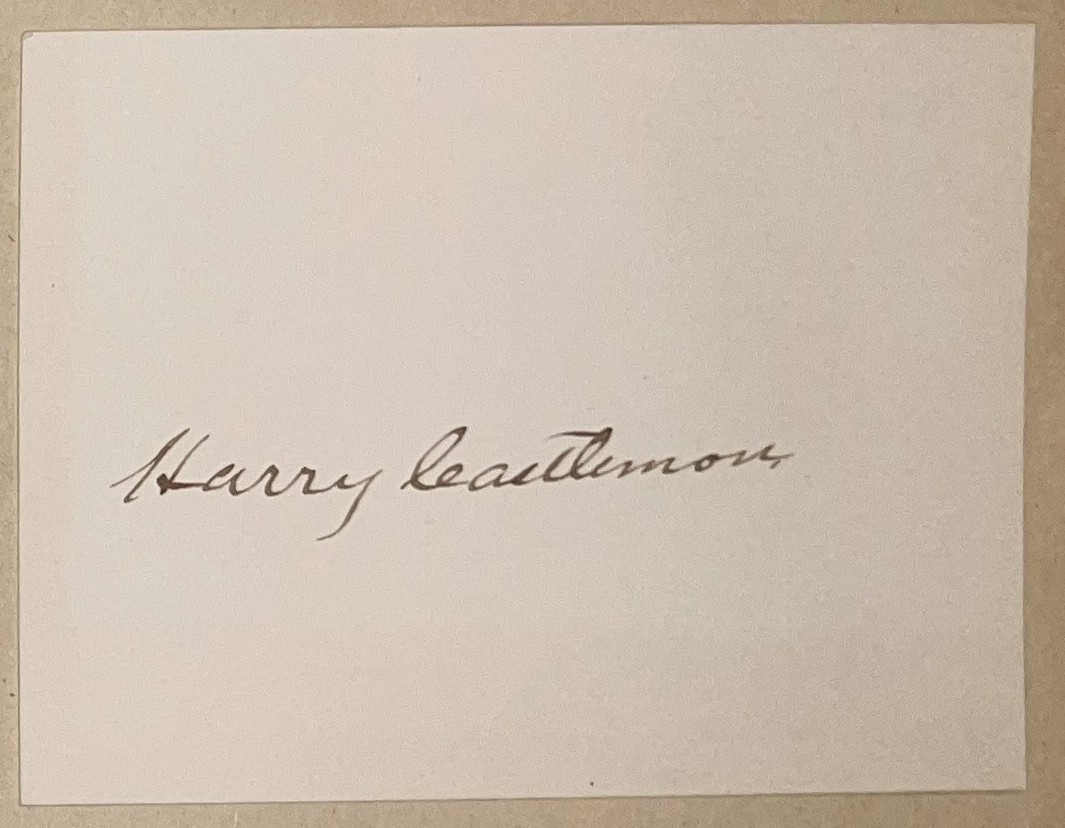 Harry Castlemon.